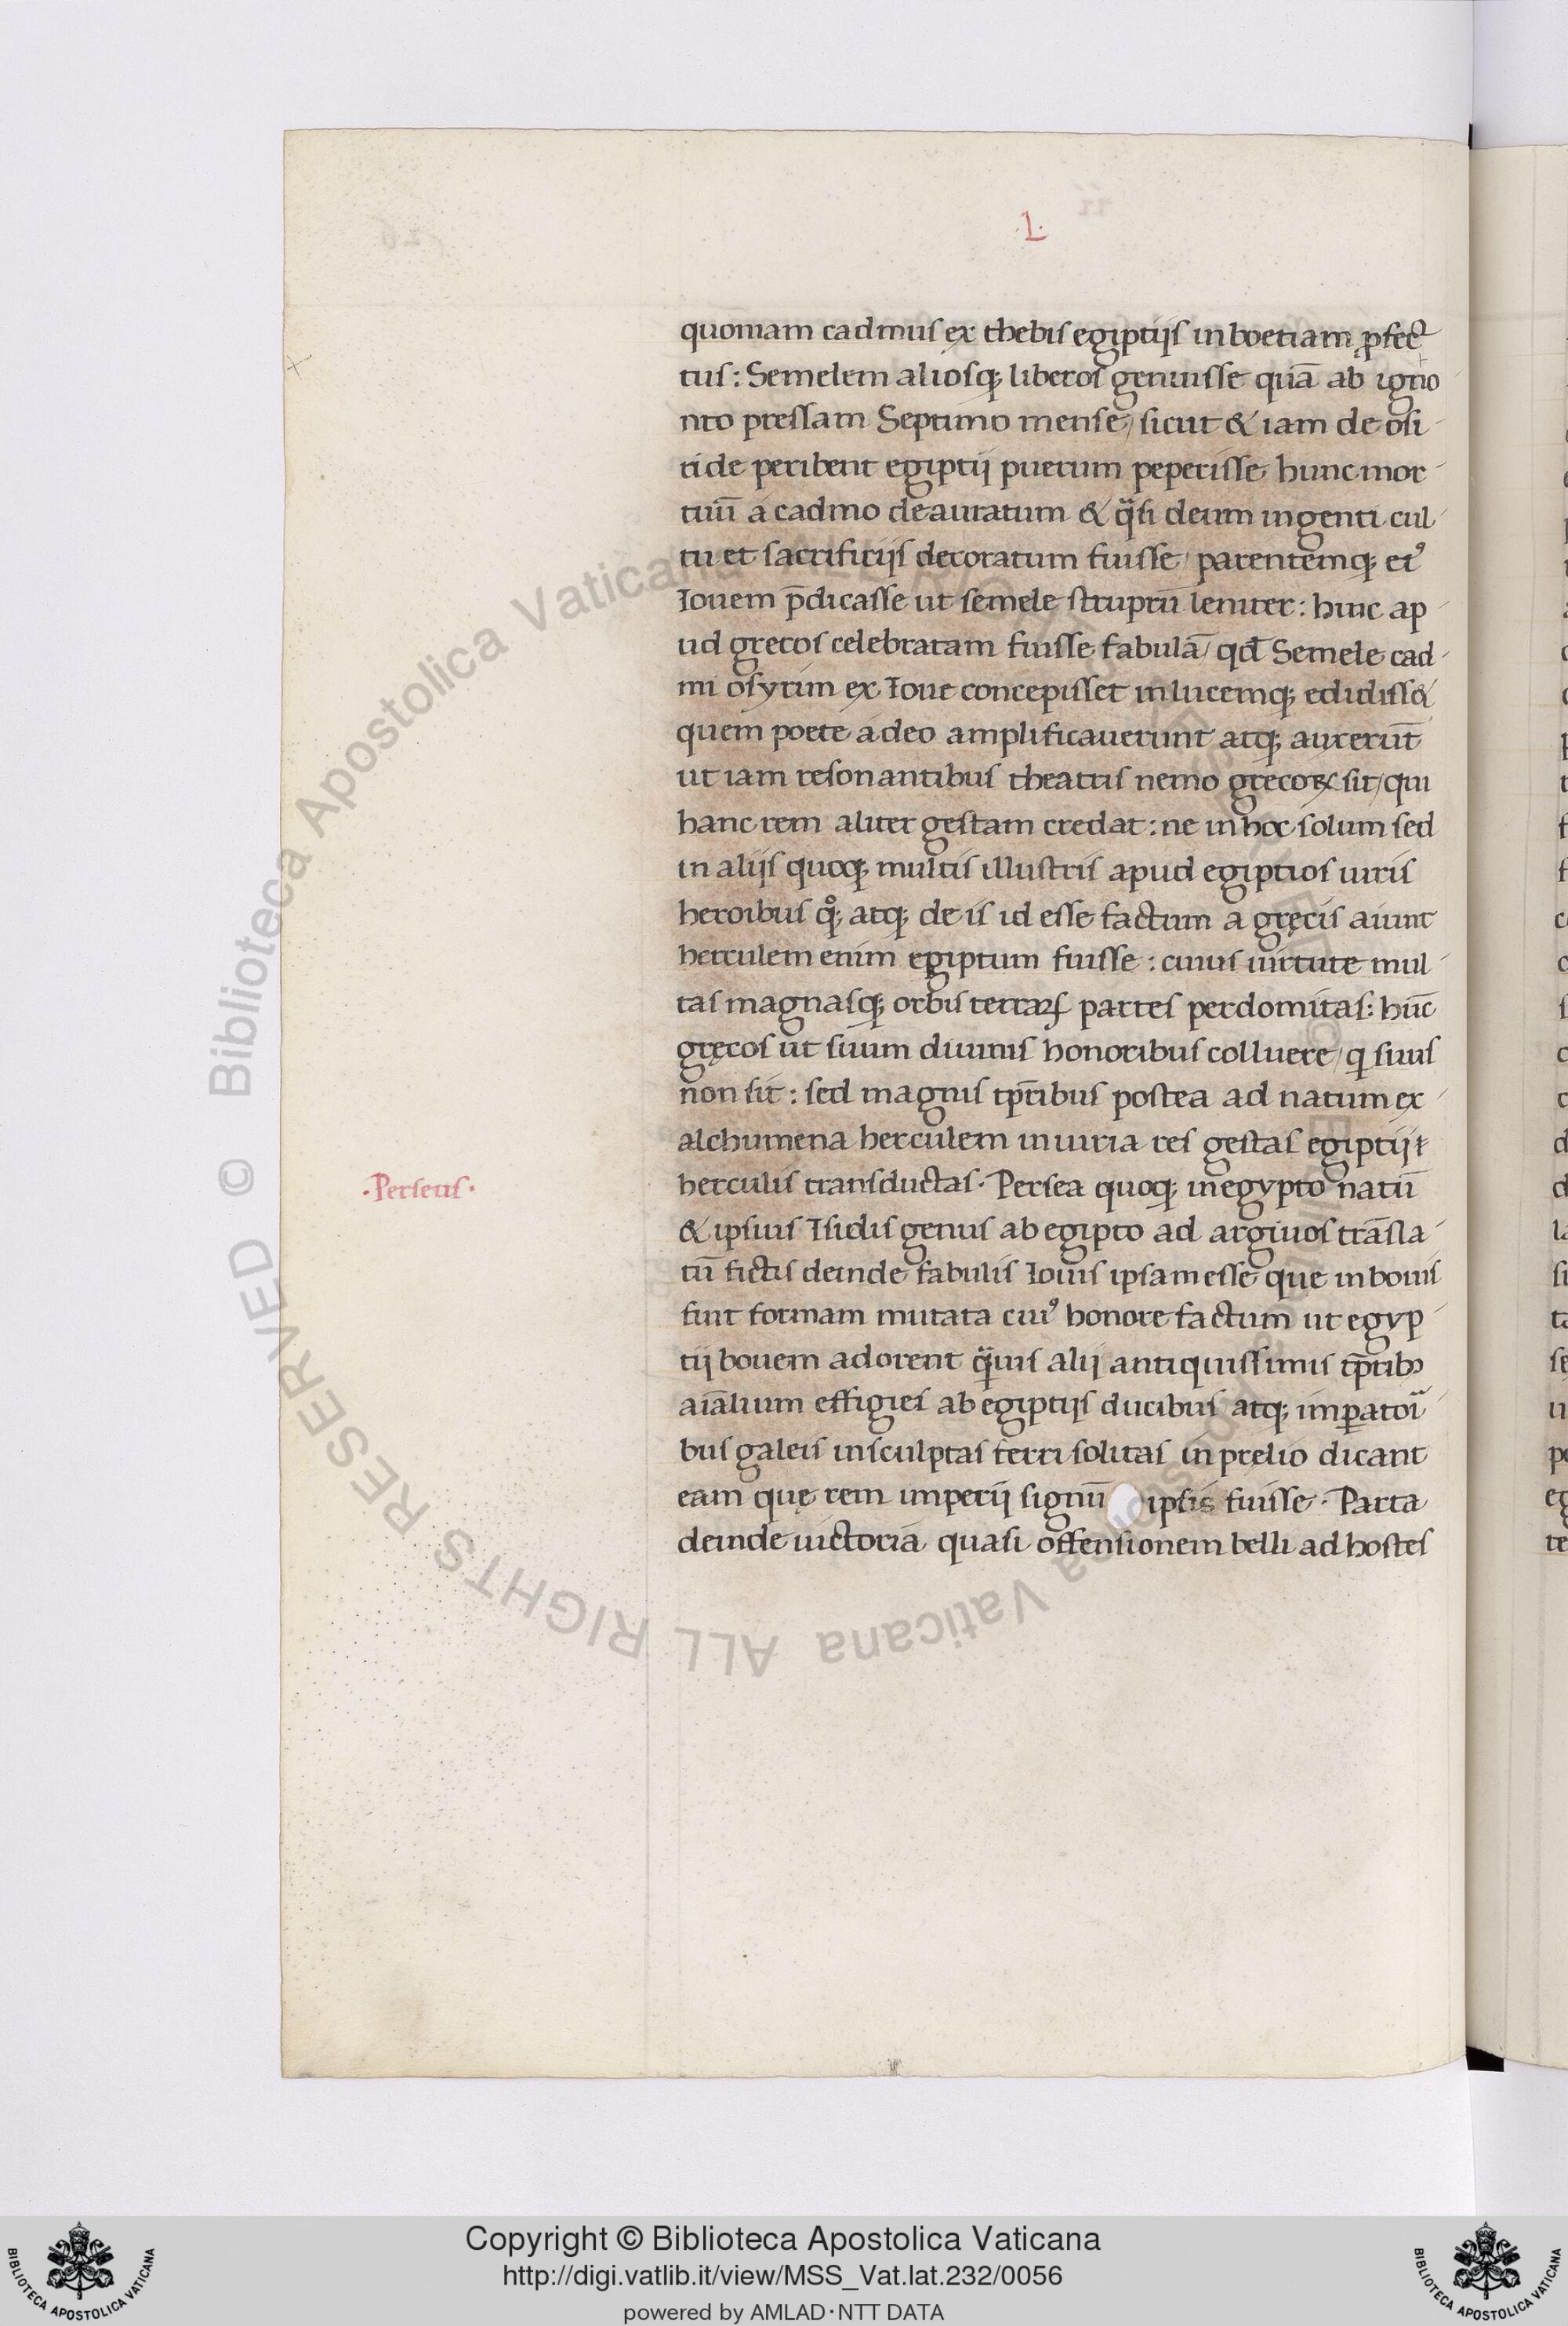 ·L·
quoniam cadmus ex thebis egiptijs in boetiam ꝓfec
tus: Semelem aliosq; liberos genuisse quā ab igno
nto pressam Septimo mense / sicut & iam de osi
ride peribent egiptij puerum peperisse hunc mor
tuū a cadmo deauratum & q̈si deum ingenti cul
tu et sacrificijs decoratum fuisse / parentemq; eiꝰ
Iouem p̄dicasse ut semele struprū leniret: hinc ap
ud grecos celebratam fuisse fabulā / qđ Semele cad
mi osyrim ex Ioue concepisset in lucemq; edidiss&
quem poete adeo amplificauerunt atq; auxerūt
ut iam resonantibus theatris nemo grecoꝝ sit / qui
hanc rem aliter gestam credat: ne in hoc solum sed
in alijs quoq; multis illustris apud egiptios uiris
heroibus qͦ; atq; de is id esse factum a gręcis aiunt
herculem enim egiptum fuisse: cuius uirtute mul
tas magnasq; orbis terraꝝ partes perdomitas: hūc
gręcos ut suum diuinis honoribus colluere / q suus
non sit: sed magnis tp̄ribus postea ad natum ex
alchumena herculem iniuria res gestas egiptij
herculis transductas. Persea quoq; in egypto natū
& ipsius Isidis genus ab egipto ad argiuos trāsla
tū fictis deinde fabulis Iouis ipsam esse que in bouis
fuit formam mutata cuiꝰ honore factum ut egyp
tij bouem adorent q̈uis alij antiquissimis tp̄ribꝫ
aīalium effigies ab egiptijs ducibus atq; imꝑatoī
bus galeis insculptas ferri solitas in prelio dicant
eam quę rem imperij signū ipsis fuisse. Parta
deinde uictoria quasi offensionem belli ad hostes
·Perseus·
© Biblioteca Apostolica Vaticana ALL RIGHTS RESERVED © Biblioteca Apostolica Vaticana ALL RIGHTS RESERVED
Copyright © Biblioteca Apostolica Vaticana
http://digi.vatlib.it/view/MSS_Vat.lat.232/0056
powered by AMLAD·NTT DATA
BIBLIOTECA APOSTOLICA VATICANA
BIBLIOTECA APOSTOLICA VATICANA